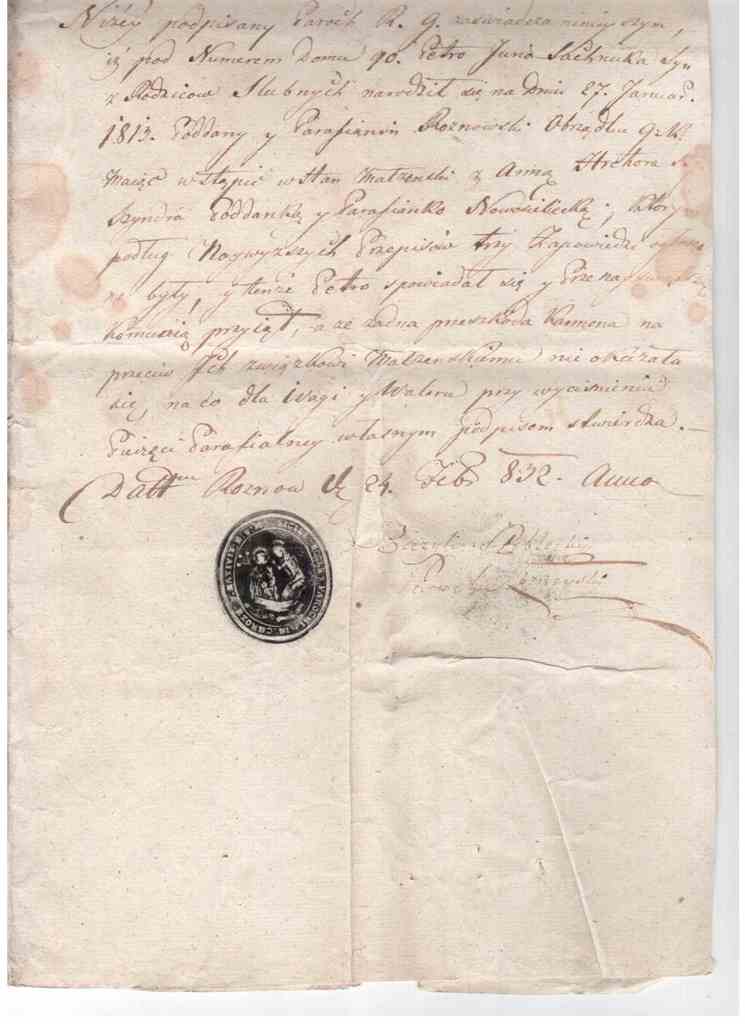 Niżey podpisany Paroch R. G. zaświadcza niniyszym,
iż pod Numerem Domu 90. Petro Juria Sachniuka Syn
z Rodziców Slubnych narodził się na Dniu 27. Januar.
1813. Poddany y Parafianin Roznowski Obrządku G. K.
maiąc wstąpić w stan Małżenski z Anną Hrehora
Szyndra Poddanką y Parafianko Nowosilicką; którym
podług Naywyższych Przepisów trzy Zapowiedzi
ne były, y tenże Petro spowiadał się y Przenay
komunią przyiął, a że żadna prieszkoda kanona na
przeciw Ich związkowi Małżenskiemu nie okazała
się, na co dla Wagi y Waloru przy wyciśnieniu
Pieczęci Parafialney własnym podpisem stwierdza.
Datt Roznow d 24. Feb 832. Anno
Paroch